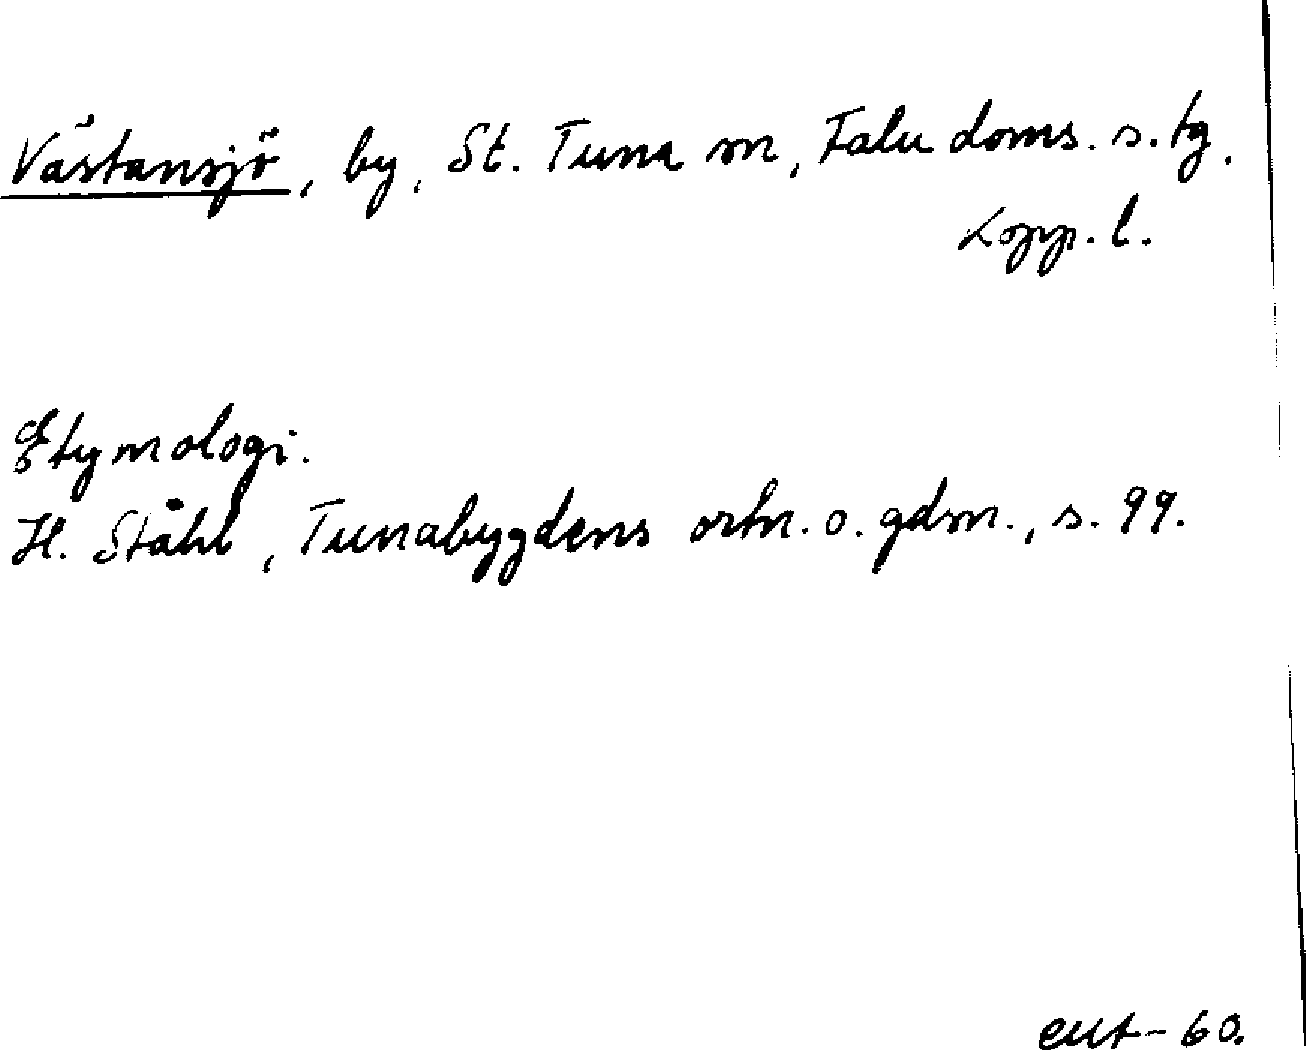 Västansjö, by, St. Tuna sn, Falu doms. s. tg,
Kopp. l.
Etymologi.
H. Ståhl, Tunabygdens ortn. o. gdsn., s. 99.
-60.